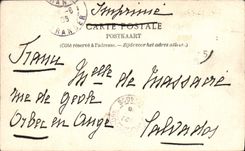 Imprimé
CARTE POSTALE
POSTKAART
(Côté réservé à l'adresse. — Zijde voor het adres alleen.)
Melle de Massacré
rue de
Orbec en Auge
Calvados